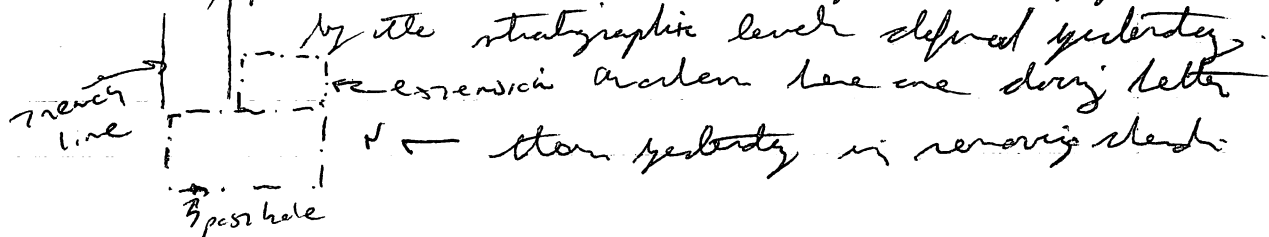 by the stratigraphic levels defined yesterday.
extension
here are doing better
N
than yesterday in removing
trench
line
posthole